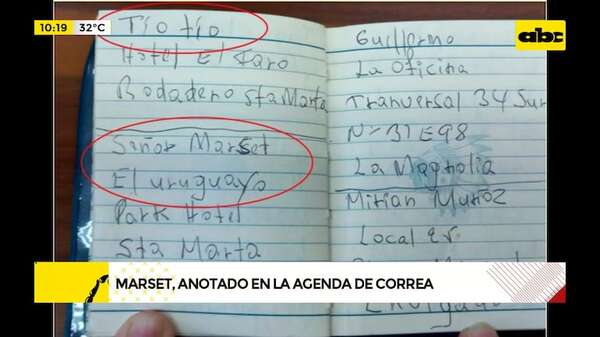 10:19
32°C
abc
Tío tío
Hotel El Faro
Rodadero Sta Marta
Señor Marset
El uruguayo
Park Hotel
Sta Marta
Guillermo
La Oficina
Tranversal 34 Sur
N= 31 E 98
La Magnolia
Mirian Muñoz
Local
MARSET, ANOTADO EN LA AGENDA DE CORREA
abc
Envigado